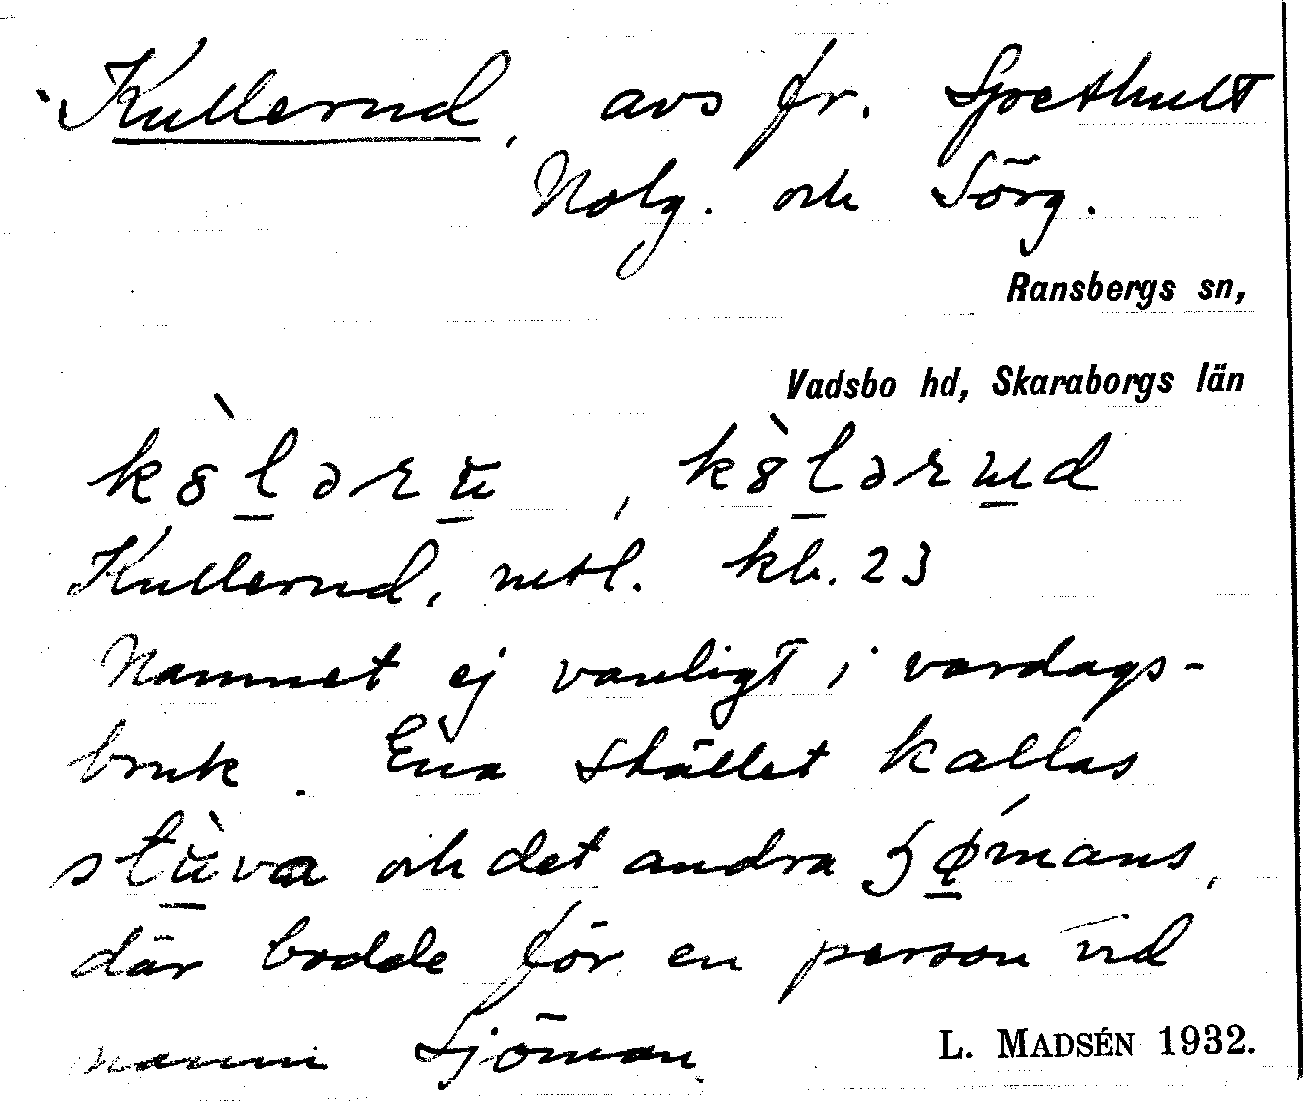 Kullerud, avs fr. Spethult
Nolg. och Sörg.
Ransbergs sn,
Vadsbo hd, Skaraborgs län
kȣ̀ləru, kȣ̀lərud
Kullerud, kb. 23
Namnet ej vanligt i vardags-
bruk. Ena stället kallas
stùva och det andra ʂǿmans,
där bodde för en person vid
namn Sjöman
L. MADSÉN 1932.